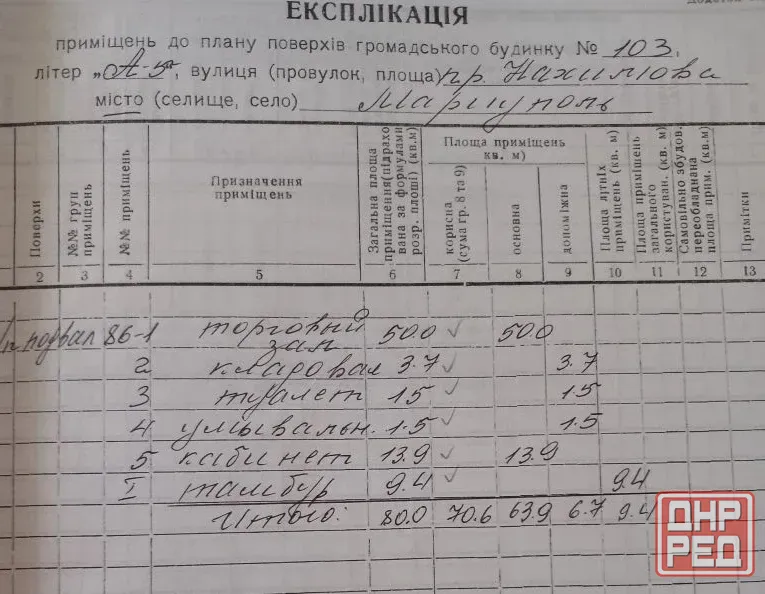 ЕКСПЛІКАЦІЯ
приміщень до плану поверхів громадського будинку № 103,
літер „А-5", вулиця (провулок, площа) пр. Нахимова
місто (селище, село) Мариуполь
Поверхи
№№ груп приміщень
№№ приміщень
Призначення приміщень
Загальна площа приміщення(підрахована за формулами розр. площі) (кв.м)
Площа приміщень кв. м)
корисна (сума гр. 8 та 9)
основна
допоміжна
Площа літніх приміщень (кв. м)
Площа приміщень загального користуван. (кв. м)
Самовільно збудов. переобладнана площа прим. (кв.м)
Примітки
2 3 4 5 6 7 8 9 10 11 12 13
подвал 86-1 торговый зал 50.0 50.0
2 кладовая 3.7 3.7
3 туалет 1.5 1.5
4 умывальн. 1.5 1.5
5 кабинет 13.9 13.9
I тамбур 9.4 9.4
Итого: 80.0 70.6 63.9 6.7 9.4
ДНР
РЕД